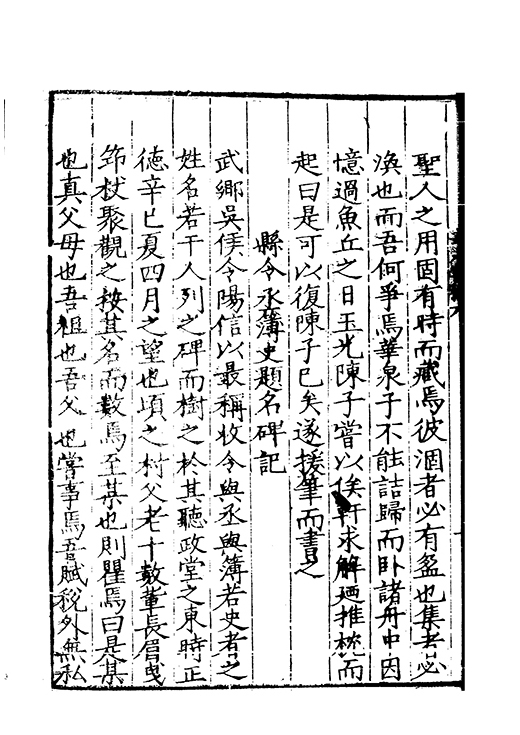 聖人之用固有時而藏焉彼涸者必有盈也集者必
渙也而吾何爭焉華泉子不能詰歸而卧諸舟中因
憶過魚丘之日玉光陳子嘗以俟軒求解廼推枕而
起曰是可以復陳子已矣遂援筆而書之
縣令丞簿史題名碑記
武鄉吳侯令陽信以最稱攷令與丞與簿若史者之
姓名若干人列之碑而樹之於其聽政堂之東時正
徳辛巳夏四月之望也頃之村父老十數輩長眉曳
笻杖聚觀之按其名而數焉至某也則瞿焉曰是某
也真父母也吾祖也吾父也嘗事焉吾賦稅外無私